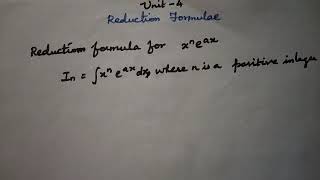 Unit-4
Reduction Formulae
Reduction formula for xⁿeᵃˣ
Iₙ = ∫xⁿeᵃˣdx, where n is a positive integer